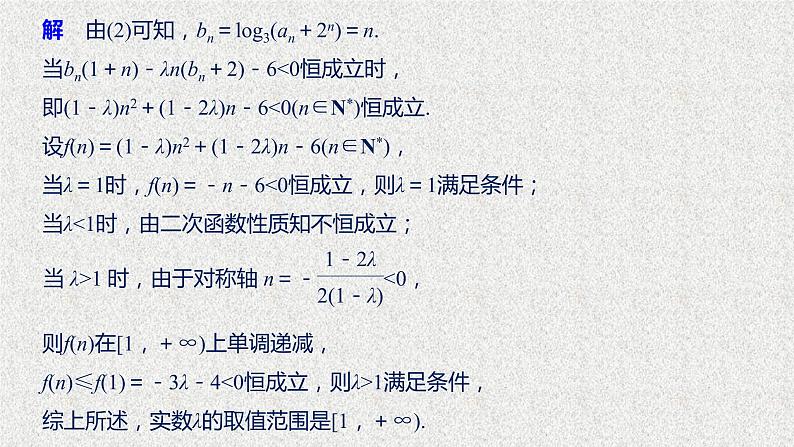 解　由(2)可知，bₙ＝log₃(aₙ＋2ⁿ)＝n.
当bₙ(1＋n)－λn(bₙ＋2)－6<0恒成立时，
即(1－λ)n²＋(1－2λ)n－6<0(n∈N*)恒成立.
设f(n)＝(1－λ)n²＋(1－2λ)n－6(n∈N*)，
当λ＝1时，f(n)＝－n－6<0恒成立，则λ＝1满足条件；
当λ<1时，由二次函数性质知不恒成立；
当 λ>1 时，由于对称轴 n＝－\frac{1－2λ}{2(1－λ)}<0，
则f(n)在[1，＋∞)上单调递减，
f(n)≤f(1)＝－3λ－4<0恒成立，则λ>1满足条件，
综上所述，实数λ的取值范围是[1，＋∞).